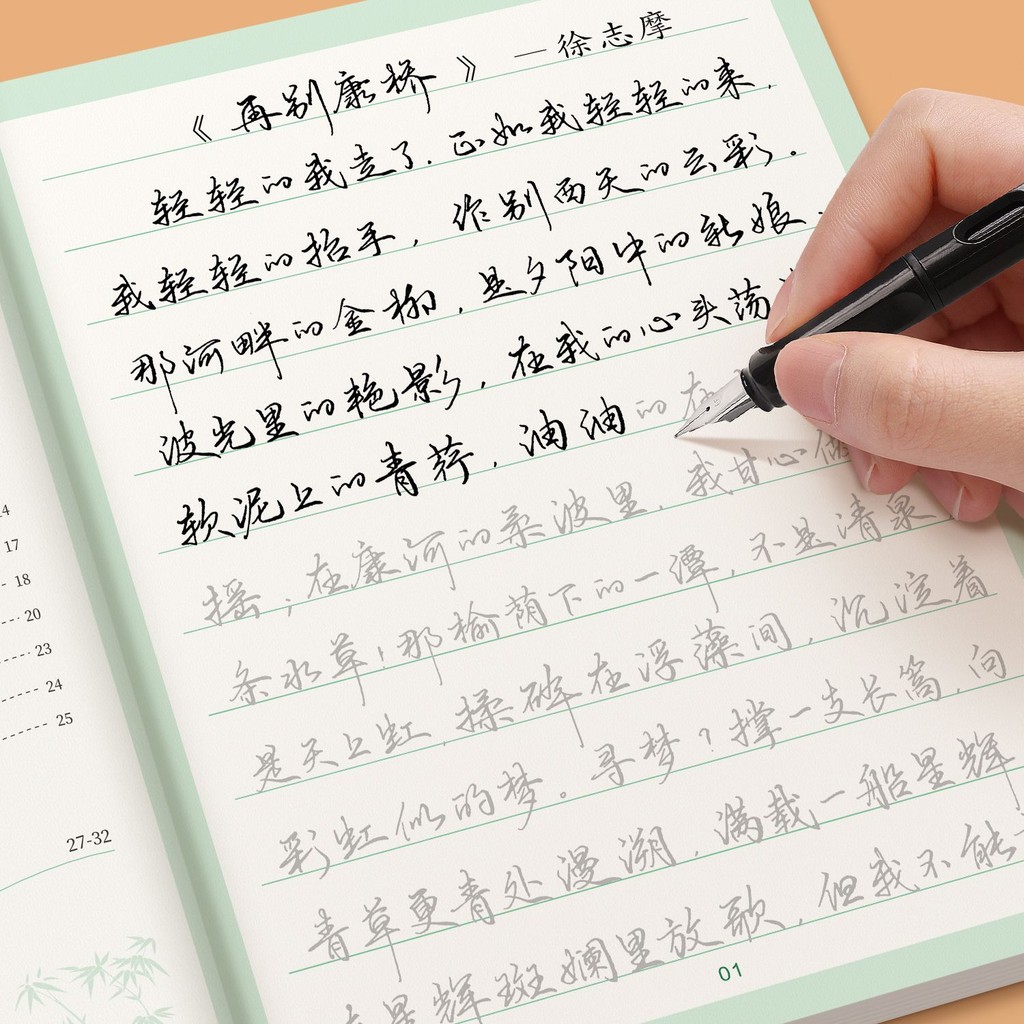 《再别康桥》 — 徐志摩
轻轻的我走了,正如我轻轻的来,
我轻轻的招手,作别西天的云彩。
那河畔的金柳,是夕阳中的新娘,
波光里的艳影,在我的心头荡
软泥上的青荇,油油的在
摇;在康河的柔波里,我甘心做
条水草!那榆荫下的一潭,不是清泉
是天上虹,揉碎在浮藻间,沉淀着
彩虹似的梦。寻梦?撑一支长篙,向
青草更青处漫溯,满载一船星辉
在星辉斑斓里放歌,但我不能
01
14
17
18
20
23
24
25
27-32